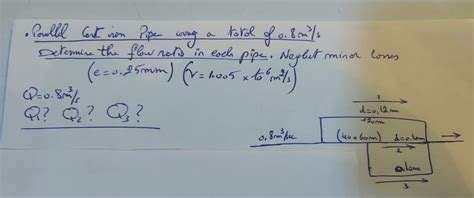 . Parallel Cast iron Pipe carry a total of 0.8 m³/s
Determine the flow ratio in each pipe. Neglect minor losses
(e = 0.25mm) (ν = 1.005 × 10⁶ m²/s)
Q = 0.8 m³/s
Q₁? Q₂? Q₃?
1
d = 0,12m
120m
0.8 m³/sec
(40+60m)
2
3